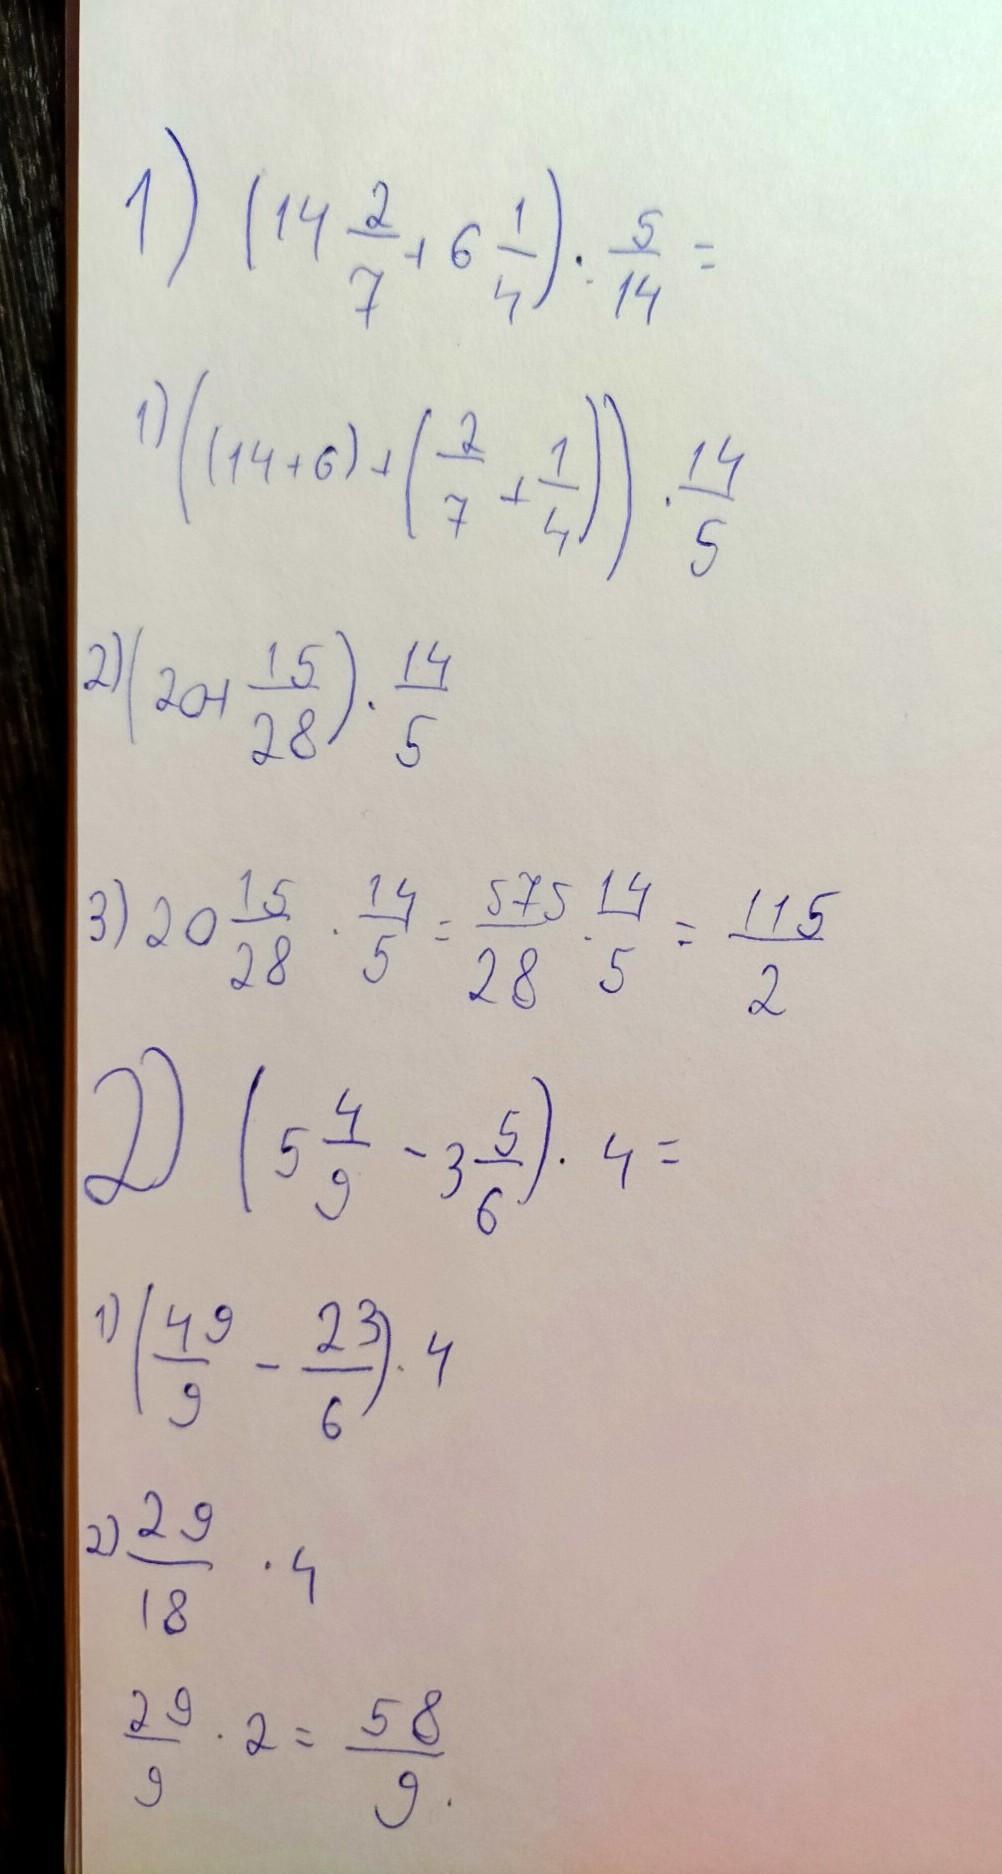 1) (14 2/7 + 6 1/4) : 5/14 =
1) ((14+6) + (2/7 + 1/4)) · 14/5
2) (20 + 15/28) · 14/5
3) 20 15/28 · 14/5 = 575/28 · 14/5 = 115/2
2) (5 4/9 - 3 5/6) · 4 =
1) (49/9 - 23/6) · 4
2) 29/18 · 4
29/9 · 2 = 58/9.